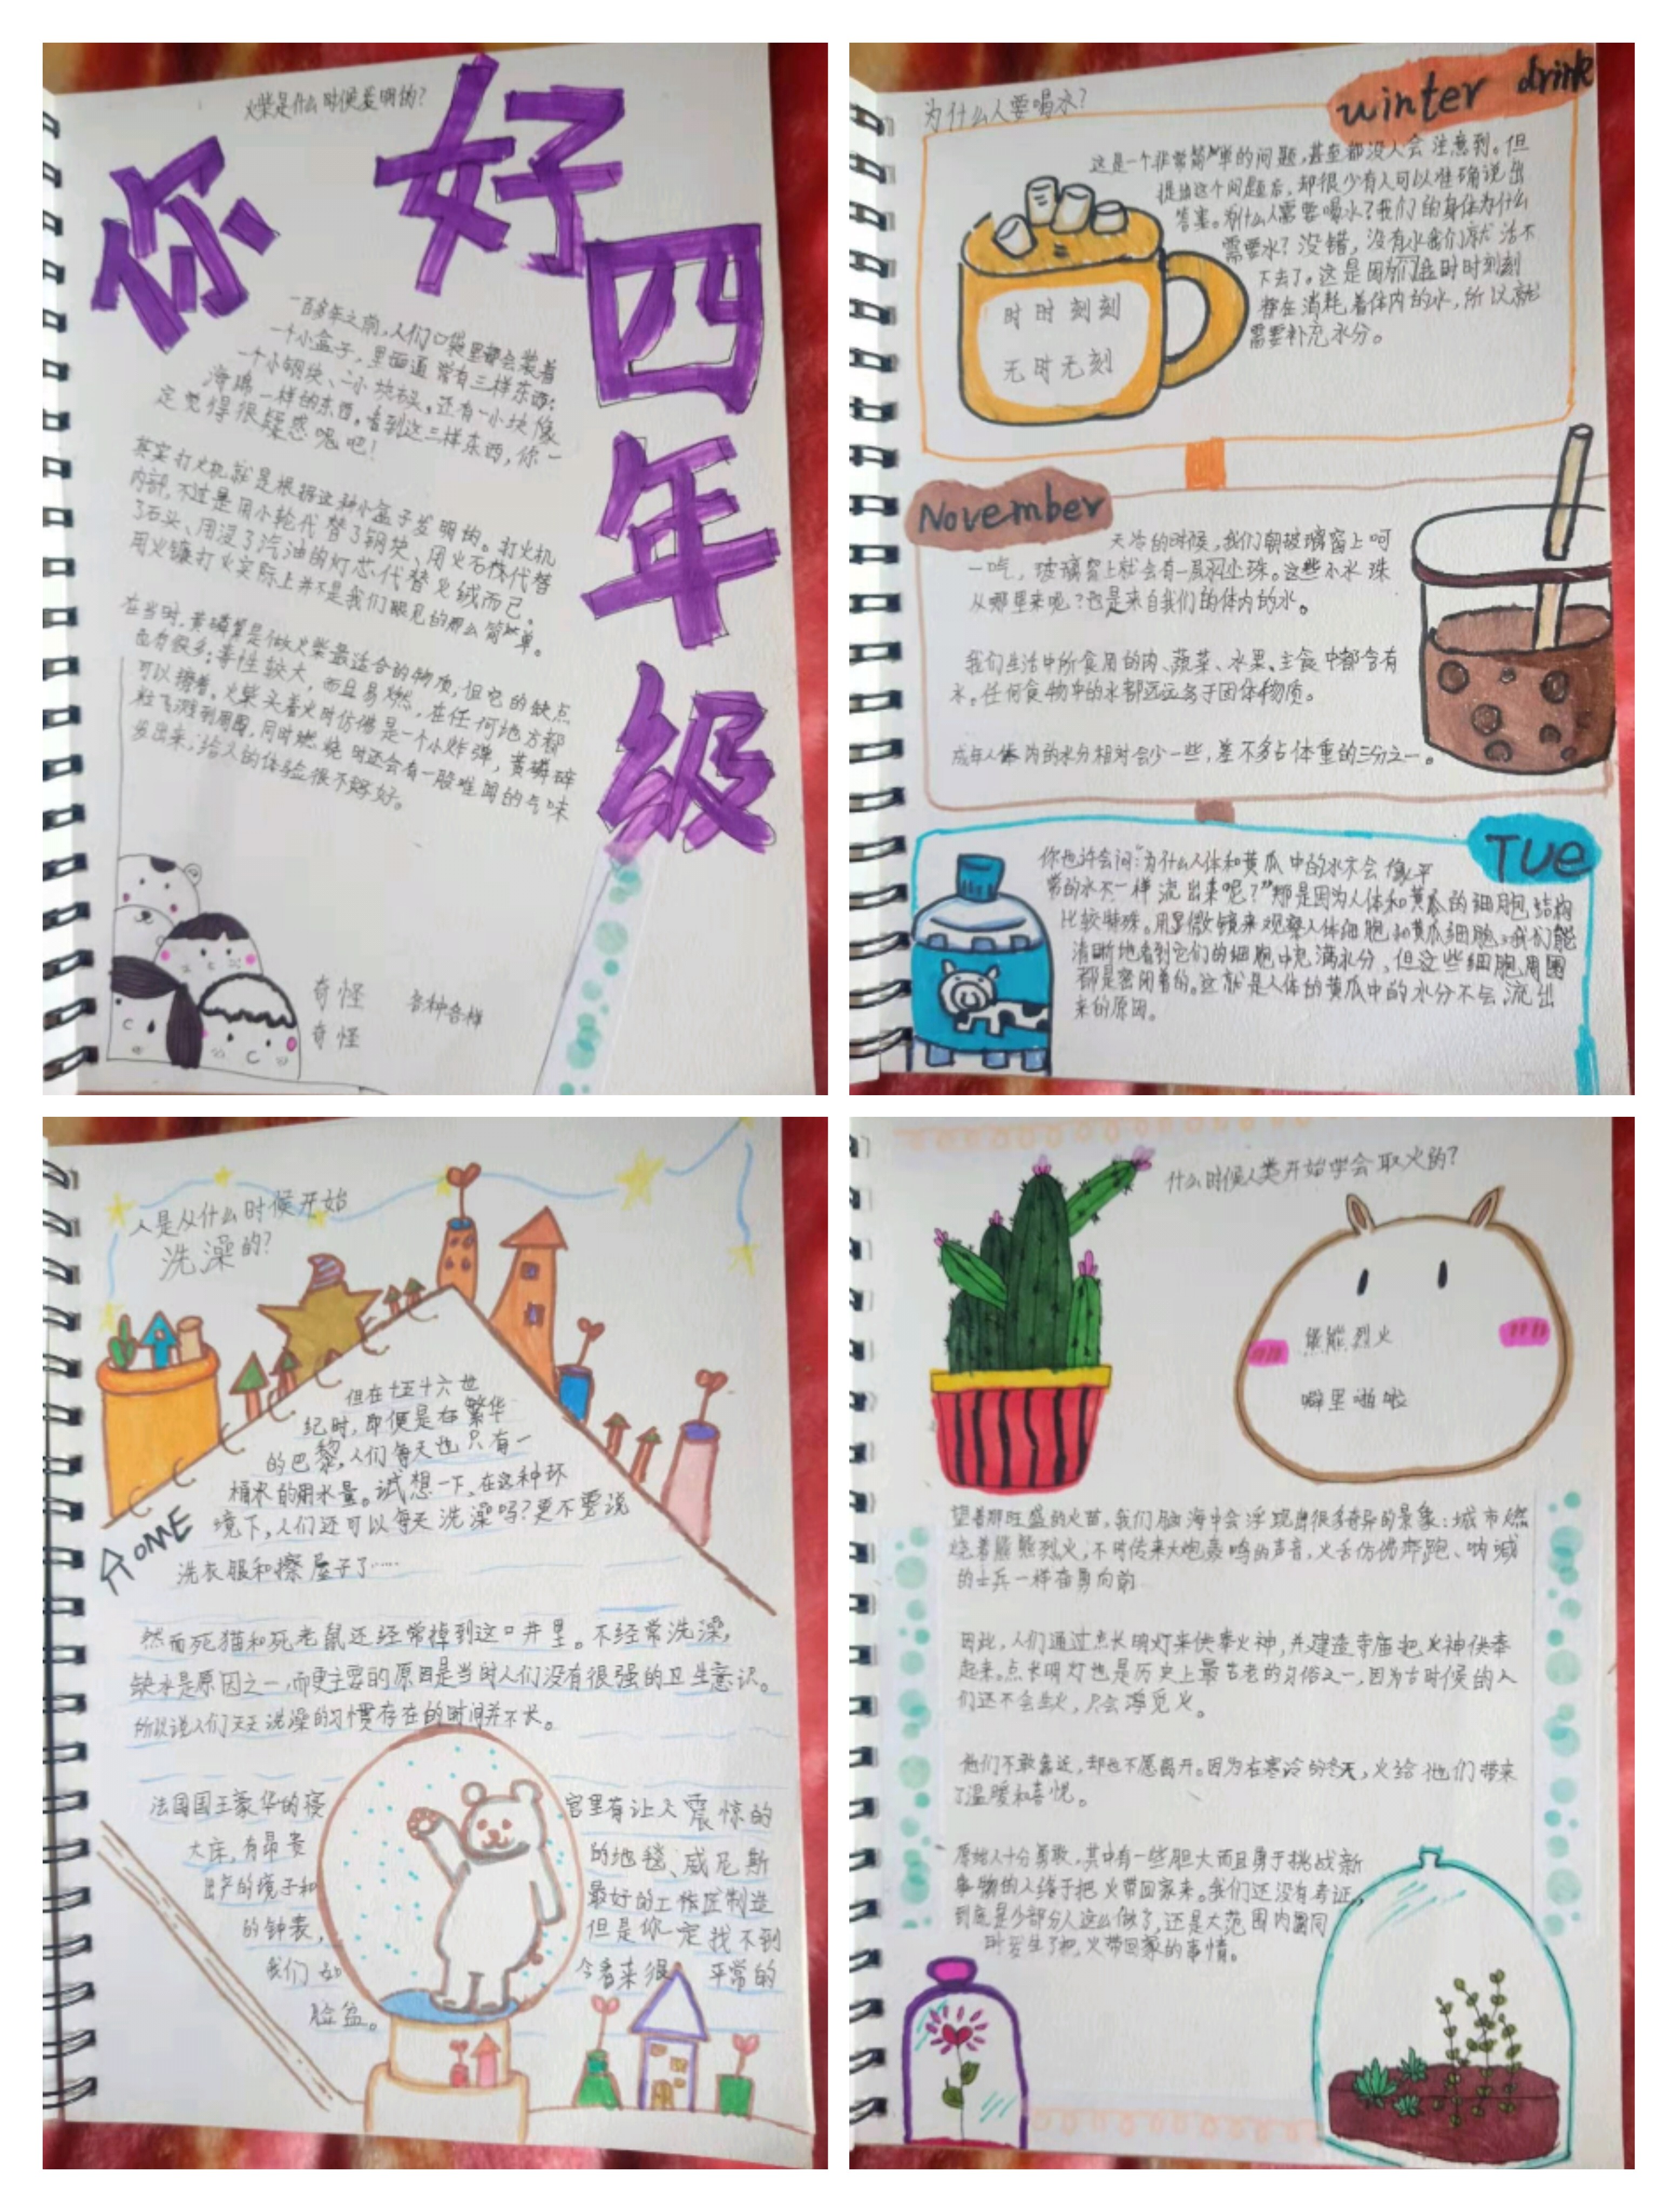 火柴是什么时候发明的?
你好四年级
一百多年之前,人们口袋里都会装着
一个小盒子,里面通常有三样东西:
一个小钢块、一小块石头,还有一小块像
海绵一样的东西。看到这三样东西,你一
定觉得很疑惑呢吧!
其实打火机就是根据这种小盒子发明的。打火机
内部,不过是用小轮代替了钢块、用火石株代替
了石头、用浸了汽油的灯芯代替火绒而已。
用火镰打火实际上并不是我们眼见的那么简单。
在当时,黄磷算是做火柴最适合的物质,但它的缺点
也有很多:毒性较大,而且易燃,在任何地方都
可以擦着。火柴头着火时仿佛是一个小炸弹,黄磷碎
粒飞溅到周围,同时燃烧时还会有一股难闻的气味
发出来,给人的体验很不好。
奇怪 各种各样
奇怪
为什么人要喝水?
winter drink
这是一个非常简单的问题,甚至都没人会注意到。但
提出这个问题后,却很少有人可以准确说出
答案。为什么人需要喝水?我们的身体为什么
需要水?没错,没有水我们就活不
下去了。这是因为们我时时刻刻
都在消耗着体内的水,所以就
需要补充水分。
时时刻刻
无时无刻
November
天冷的时候,我们朝玻璃窗上呵
一口气,玻璃窗上就会有一层小水珠。这些小水珠
从哪里来呢?也是来自我们的体内的水。
我们生活中所食用的肉、蔬菜、水果、主食中都含有
水。任何食物中的水都远远多于固体物质。
成年人体内的水分相对会少一些,差不多占体重的三分之一。
Tue
你也许会问:"为什么人体和黄瓜中的水不会像平
常的水不一样流出来呢?"那是因为人体和黄瓜的细胞结构
比较特殊。用显微镜来观察人体细胞和黄瓜细胞,我们能
清晰地看到它们的细胞中充满水分,但这些细胞周围
都是密闭着的。这就是人体的黄瓜中的水分不会流出
来的原因。
人是从什么时候开始
洗澡的?
但在十五十六世
纪时,即便是在繁华
的巴黎,人们每天也只有一
桶水的用水量。试想一下,在这种环
境下,人们还可以每天洗澡吗?更不要说
洗衣服和擦屋子了……
HOME
然而死猫和死老鼠还经常掉到这口井里。不经常洗澡,
缺水是原因之一,而更主要的原因是当时人们没有很强的卫生意识。
所以说人们天天洗澡的习惯存在的时间并不长。
法国国王豪华的寝宫里有让人震惊的
大床,有昂贵的地毯、威尼斯
出产的境子和最好的工作匠制造
的钟表,但是你一定找不到
我们如今看来很平常的
脸盆。
什么时候人类开始学会取火的?
熊熊烈火
噼里啪啦
望着那旺盛的火苗,我们脑海中会浮现出很多奇异的景象:城市燃
烧着熊熊烈火,不时传来大炮轰鸣的声音,火舌仿佛奔跑、呐喊
的士兵一样奋勇向前
因此,人们通过点长明灯来供奉火神,并建造寺庙把火神供奉
起来。点长明灯也是历史上最古老的习俗之一,因为古时候的人
们还不会生火,只会寻觅火。
他们不敢靠近,却也不愿离开。因为在寒冷的冬天,火给他们带来
了温暖和喜悦。
原始人十分勇敢,其中有一些胆大而且勇于挑战新
事物的人终于把火带回家来。我们还没有考证,
到底是少部分人这么做了,还是大范围内同
时发生了把火带回家的事情。